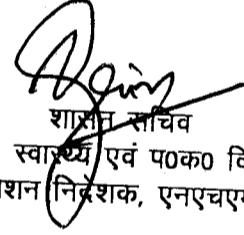 शासन सचिव
स्वास्थ्य एवं प0क0 वि
शन निदेशक, एनएचएम